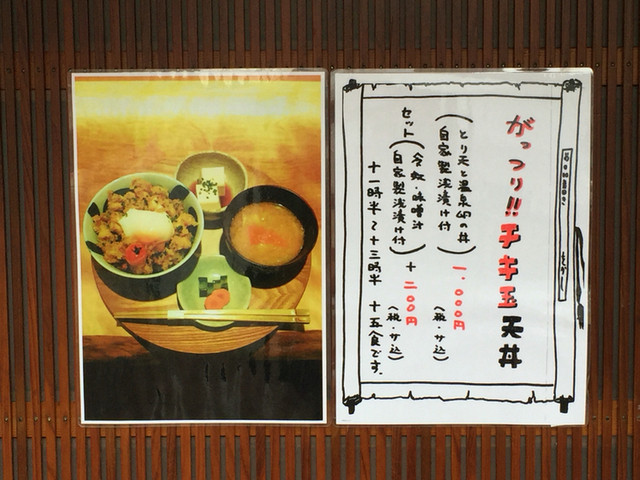 がっつり!!チキ玉天丼
(とり天と温泉卵の丼
自家製浅漬け付)
一、000円
(税・サ込)
セット(今虹・味噌汁
自家製浅漬け付)
+二00円
(税・サ込)
十一時半〜十三時半 十五食です。